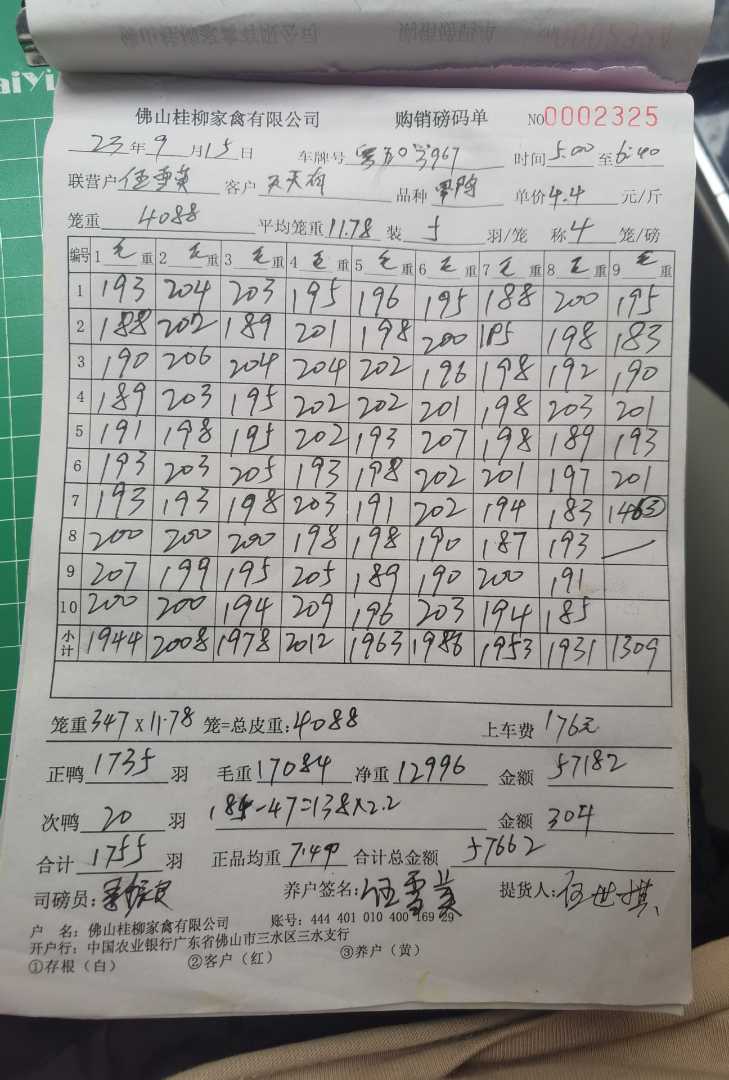 佛山桂柳家禽有限公司 购销磅码单 NO0002325
23年9月15日 车牌号 3967 时间5.00至6:40
联营户伍雪英 客户 品种 单价4.4元/斤
笼重4088 平均笼重11.78 装5羽/笼 称4笼/磅
编号 1毛重 2毛重 3毛重 4毛重 5毛重 6毛重 7毛重 8毛重 9毛重
1 193 204 203 195 196 195 188 200 195
2 188 202 189 201 198 200 195 198 183
3 190 206 204 204 202 196 198 192 190
4 189 203 195 202 202 201 198 203 201
5 191 198 195 202 193 207 198 189 193
6 193 203 205 193 198 202 201 197 201
7 193 193 198 203 191 202 194 183 146③
8 200 200 200 198 198 190 187 193 —
9 207 199 195 205 189 190 200 191
10 200 200 194 209 196 203 194 185
小计 1944 2008 1978 2012 1963 1986 1953 1931 1309
笼重347×11.78笼=总皮重:4088 上车费176元
正鸭1735羽 毛重17084 净重12996 金额57182
次鸭20羽 185-47=138×2.2 金额304
合计1755羽 正品均重7.49 合计总金额57662
司磅员: 养户签名:伍雪英 提货人:伍世棋
户 名:佛山桂柳家禽有限公司 账号:444 401 010 400 169 29
开户行:中国农业银行广东省佛山市三水区三水支行
①存根(白) ②客户(红) ③养户(黄)